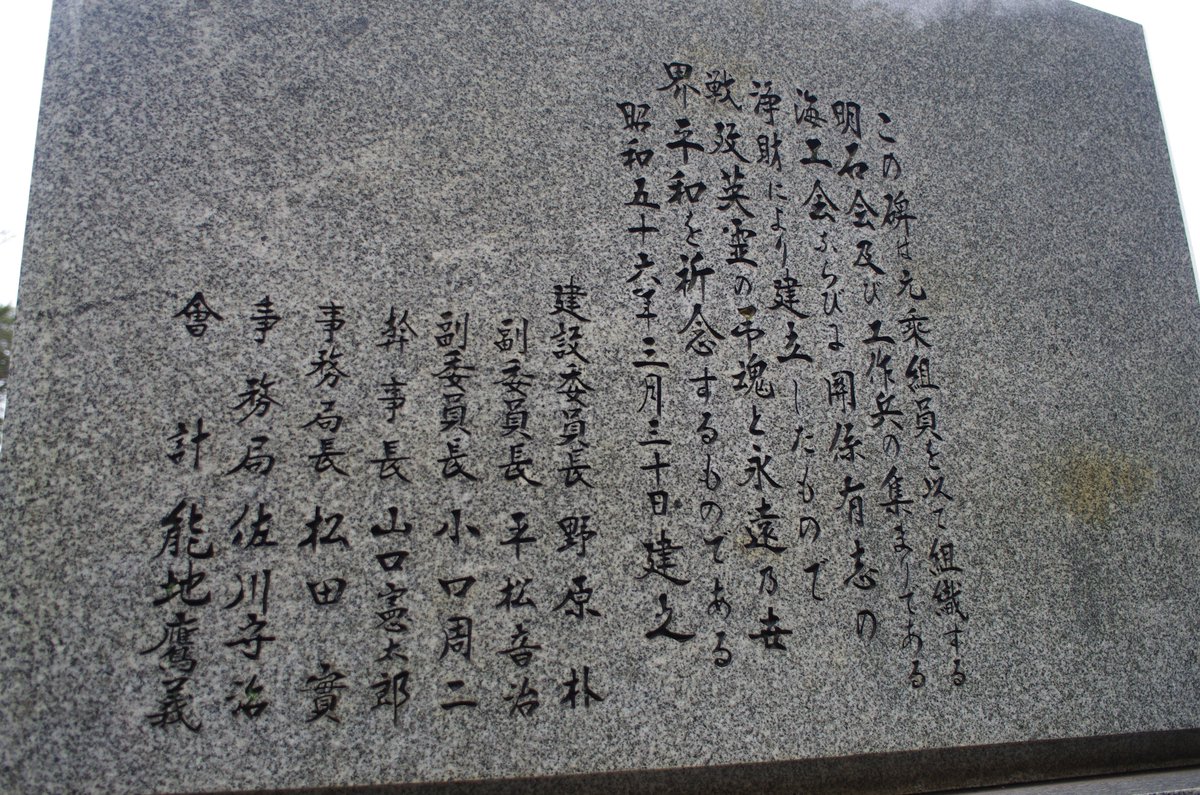 この碑は元乗組員を以て組織する
明石会及び工作兵の集まりである
海工会ならびに関係有志の
浄財により建立したもので
戦歿英霊の弔魂と永遠乃世
界平和を祈念するものである
昭和五十六年三月三十日建之
建設委員長 野原 朴
副委員長 平松音治
副委員長 小口周二
幹事長 山口憲太郎
事務局長 松田 實
事務局 佐川守治
會計 能地鷹義